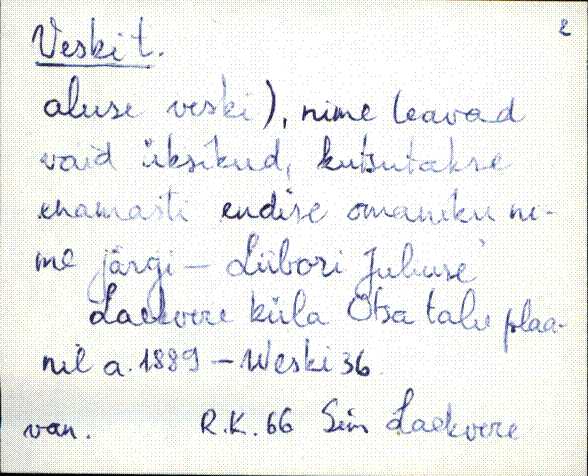 2
Veski t.
aluse veski), nime teavad
vaid üksikud, kutsutakse
enamasti endise omaniku ni-
me järgi – Liibori Juhuse'
Laekvere küla Otsa talu plaa-
nil a. 1889 – Weski 36
van. R.K. 66 Sim Laekvere